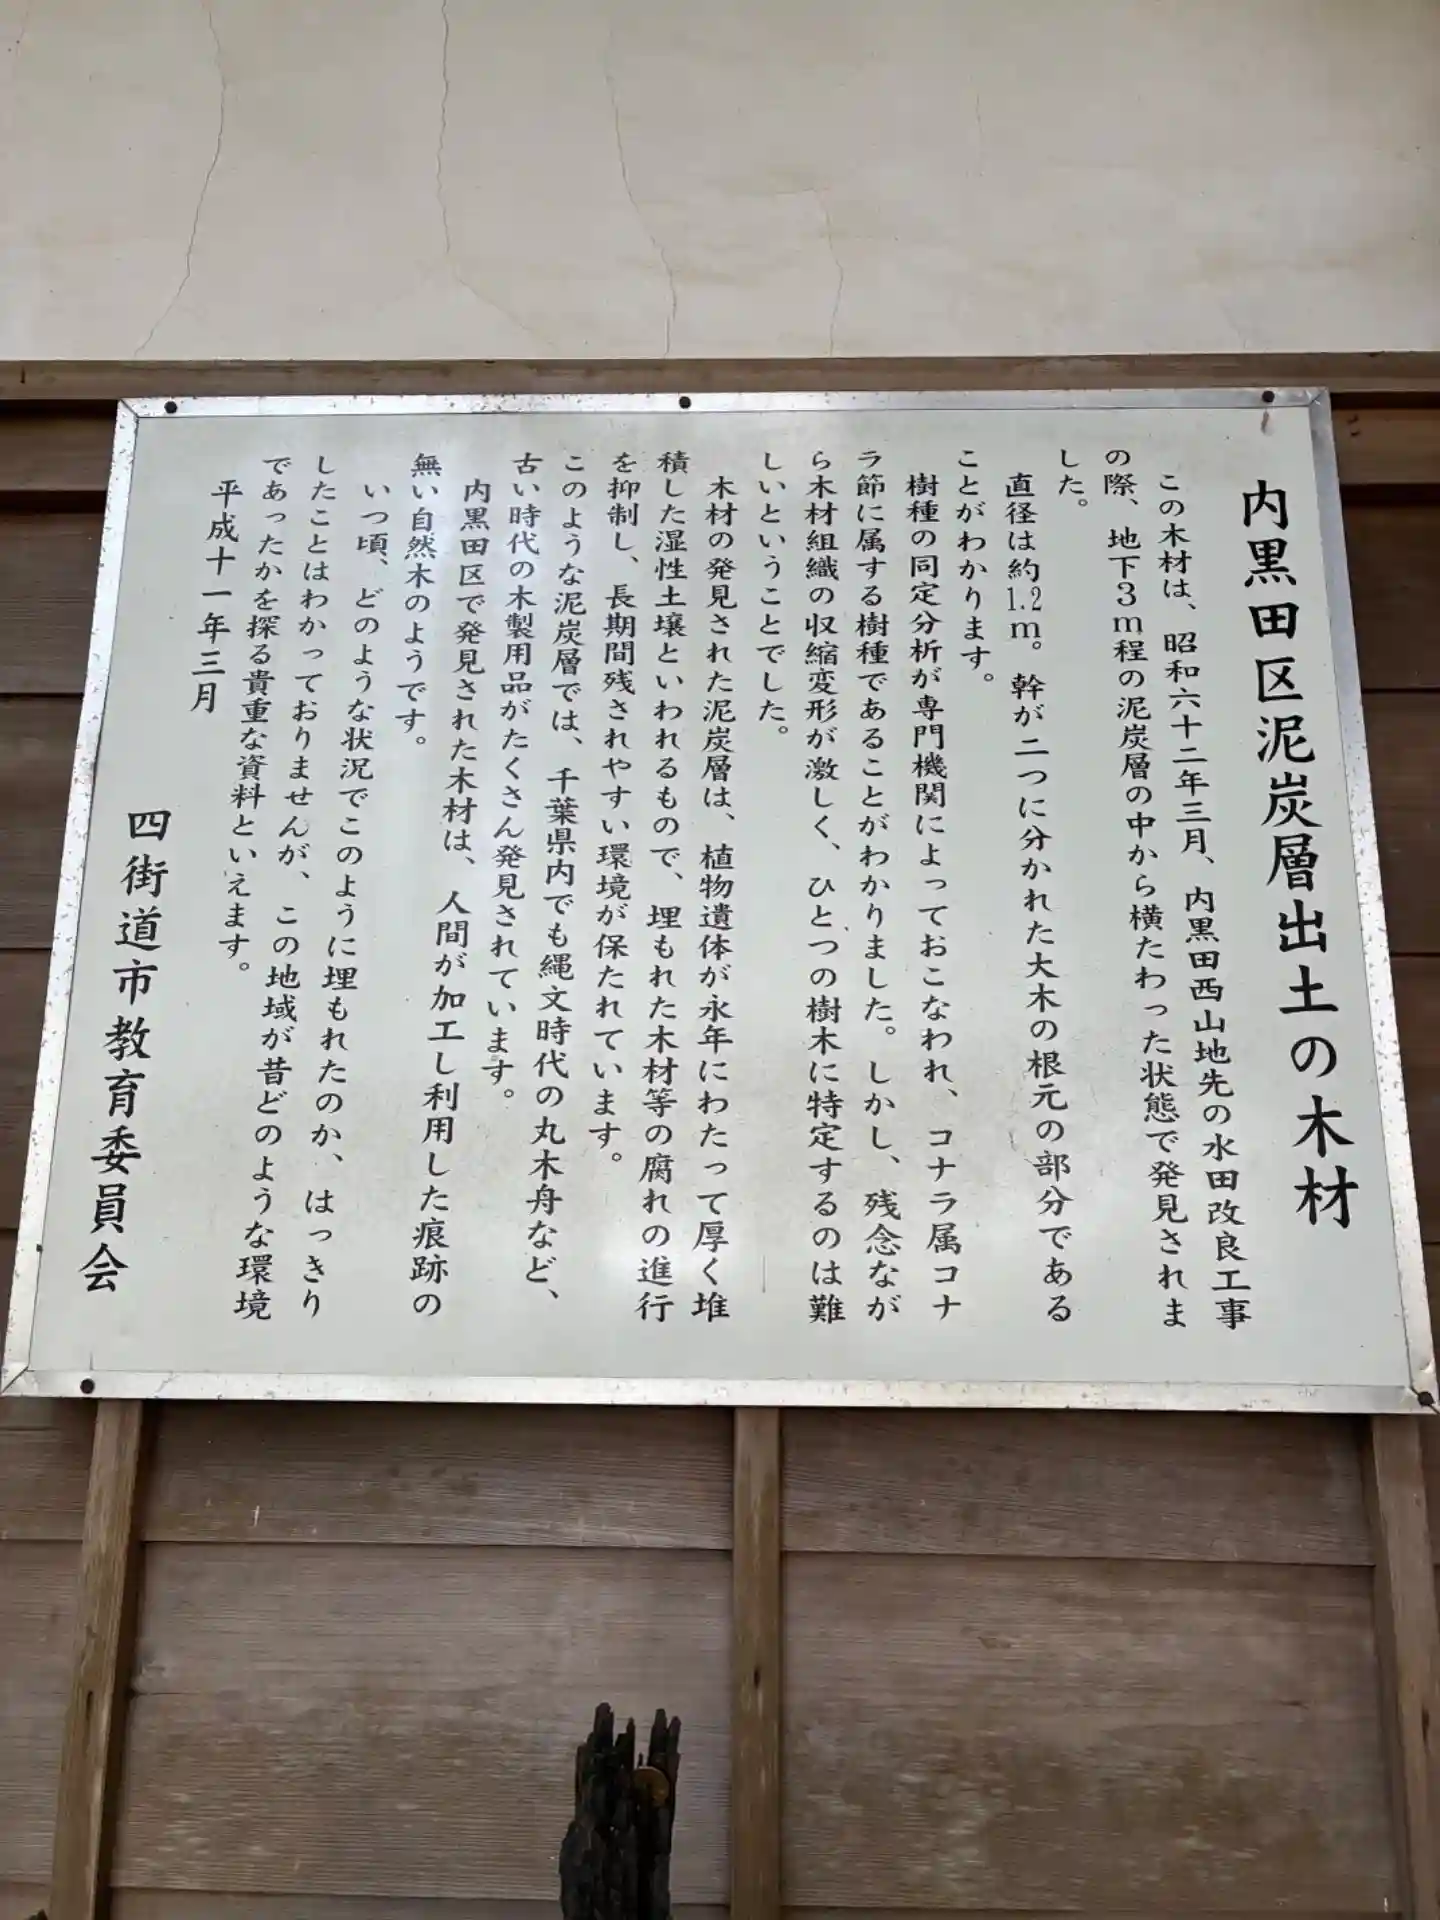 内黒田区泥炭層出土の木材
この木材は、昭和六十二年三月、内黒田西山地先の水田改良工事
の際、地下3m程の泥炭層の中から横たわった状態で発見されま
した。
直径は約1.2m。幹が二つに分かれた大木の根元の部分である
ことがわかります。
樹種の同定分析が専門機関によっておこなわれ、コナラ属コナ
ラ節に属する樹種であることがわかりました。しかし、残念なが
ら木材組織の収縮変形が激しく、ひとつの樹木に特定するのは難
しいということでした。
木材の発見された泥炭層は、植物遺体が永年にわたって厚く堆
積した湿性土壌といわれるもので、埋もれた木材等の腐れの進行
を抑制し、長期間残されやすい環境が保たれています。
このような泥炭層では、千葉県内でも縄文時代の丸木舟など、
古い時代の木製用品がたくさん発見されています。
内黒田区で発見された木材は、人間が加工し利用した痕跡の
無い自然木のようです。
いつ頃、どのような状況でこのように埋もれたのか、はっきり
したことはわかっておりませんが、この地域が昔どのような環境
であったかを探る貴重な資料といえます。
平成十一年三月
四街道市教育委員会